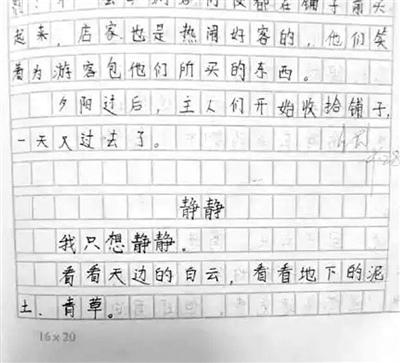 起来，店家也是热闹好客的，他们笑
着为游客包他们所买的东西。
夕阳过后，主人们开始收拾铺子，
一天又过去了。
静静
我只想静静。
看看天边的白云，看看地下的泥
土、青草。
16×20